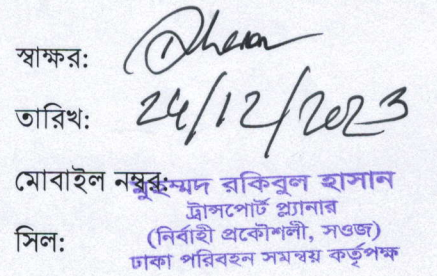 স্বাক্ষর:
তারিখ: 24/12/2023
মোবাইল নম্বর:
মুহম্মদ রকিবুল হাসান
ট্রান্সপোর্ট প্ল্যানার
সিল: (নির্বাহী প্রকৌশলী, সওজ)
ঢাকা পরিবহন সমন্বয় কর্তৃপক্ষ